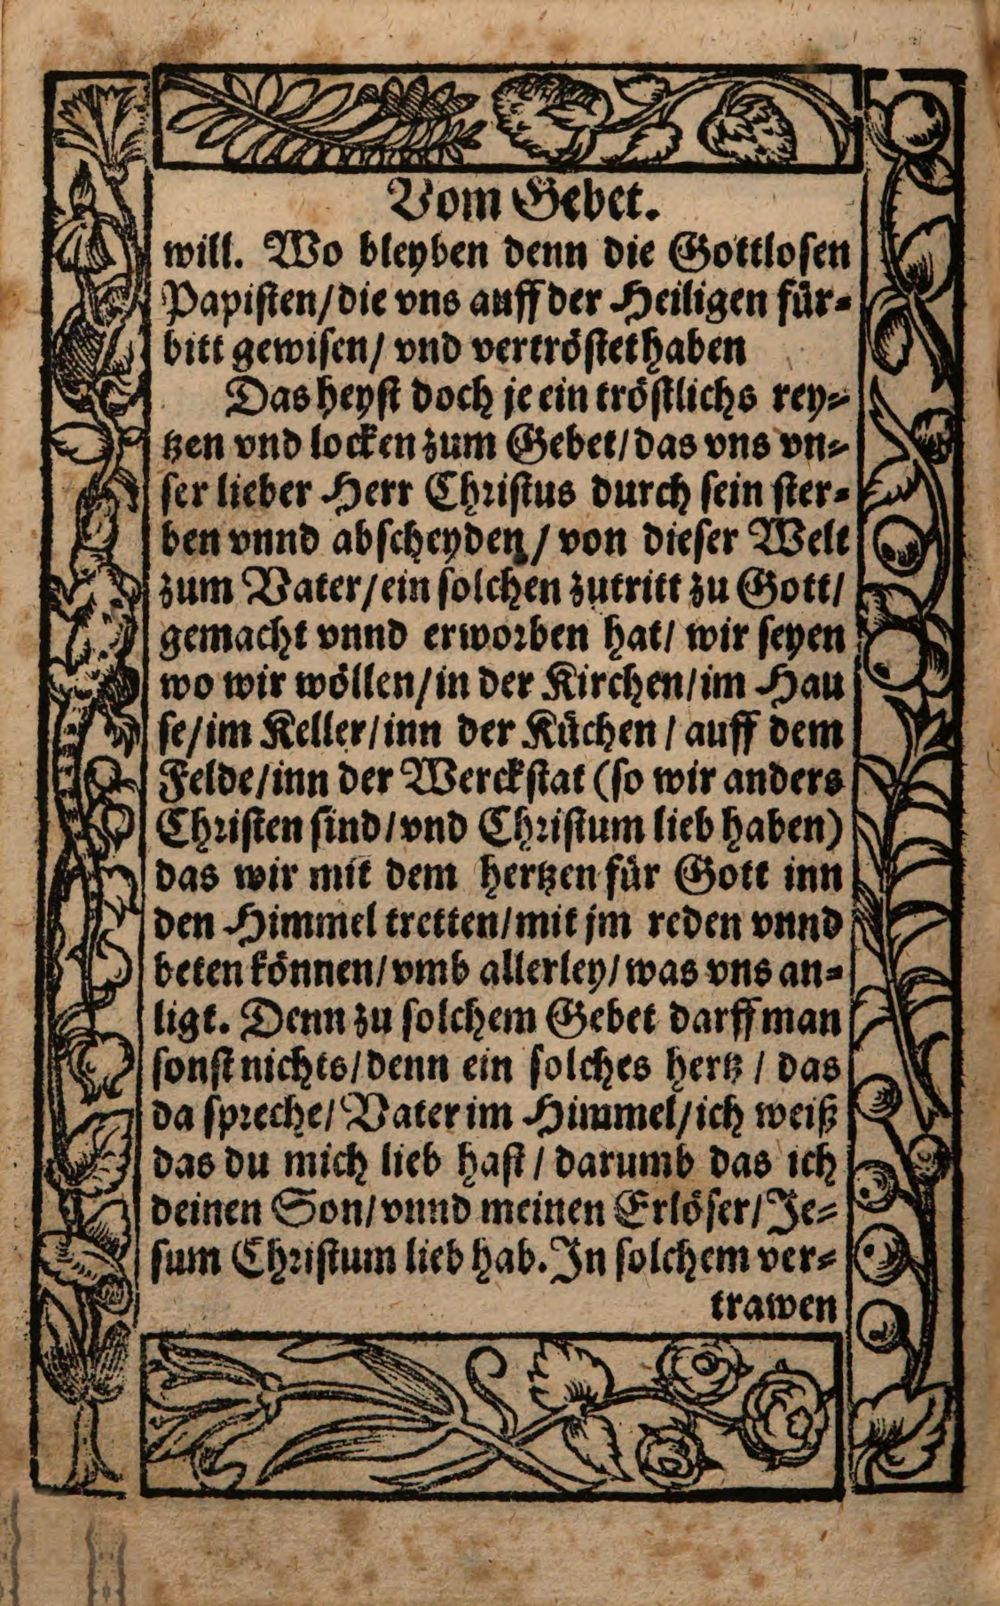 Vom Gebet.
will. Wo bleyben denn die Gottlosen
Papisten/die vns auff der Heiligen für⸗
bitt gewisen/ vnd vertröstet haben
Das heyst doch je ein tröstlichs rey⸗
tzen vnd locken zum Gebet/das vns vn⸗
ser lieber Herr Christus durch sein ster⸗
ben vnnd abscheyden/ von dieser Welt
zum Vater/ein solchen zutritt zu Gott/
gemacht vnnd erworben hat/ wir seyen
wo wir wöllen/in der Kirchen/im Hau
se/im Keller/inn der Küchen/ auff dem
Felde/inn der Werckstat (so wir anders
Christen sind/vnd Christum lieb haben)
das wir mit dem hertzen für Gott inn
den Himmel tretten/mit jm reden vnnd
beten können/vmb allerley/was vns an⸗
ligt. Denn zu solchem Gebet darff man
sonst nichts/denn ein solches hertz/ das
da spreche/Vater im Himmel/ich weiß
das du mich lieb hast/ darumb das ich
deinen Son/vnnd meinen Erlöser/Je⸗
sum Christum lieb hab. In solchem ver⸗
trawen